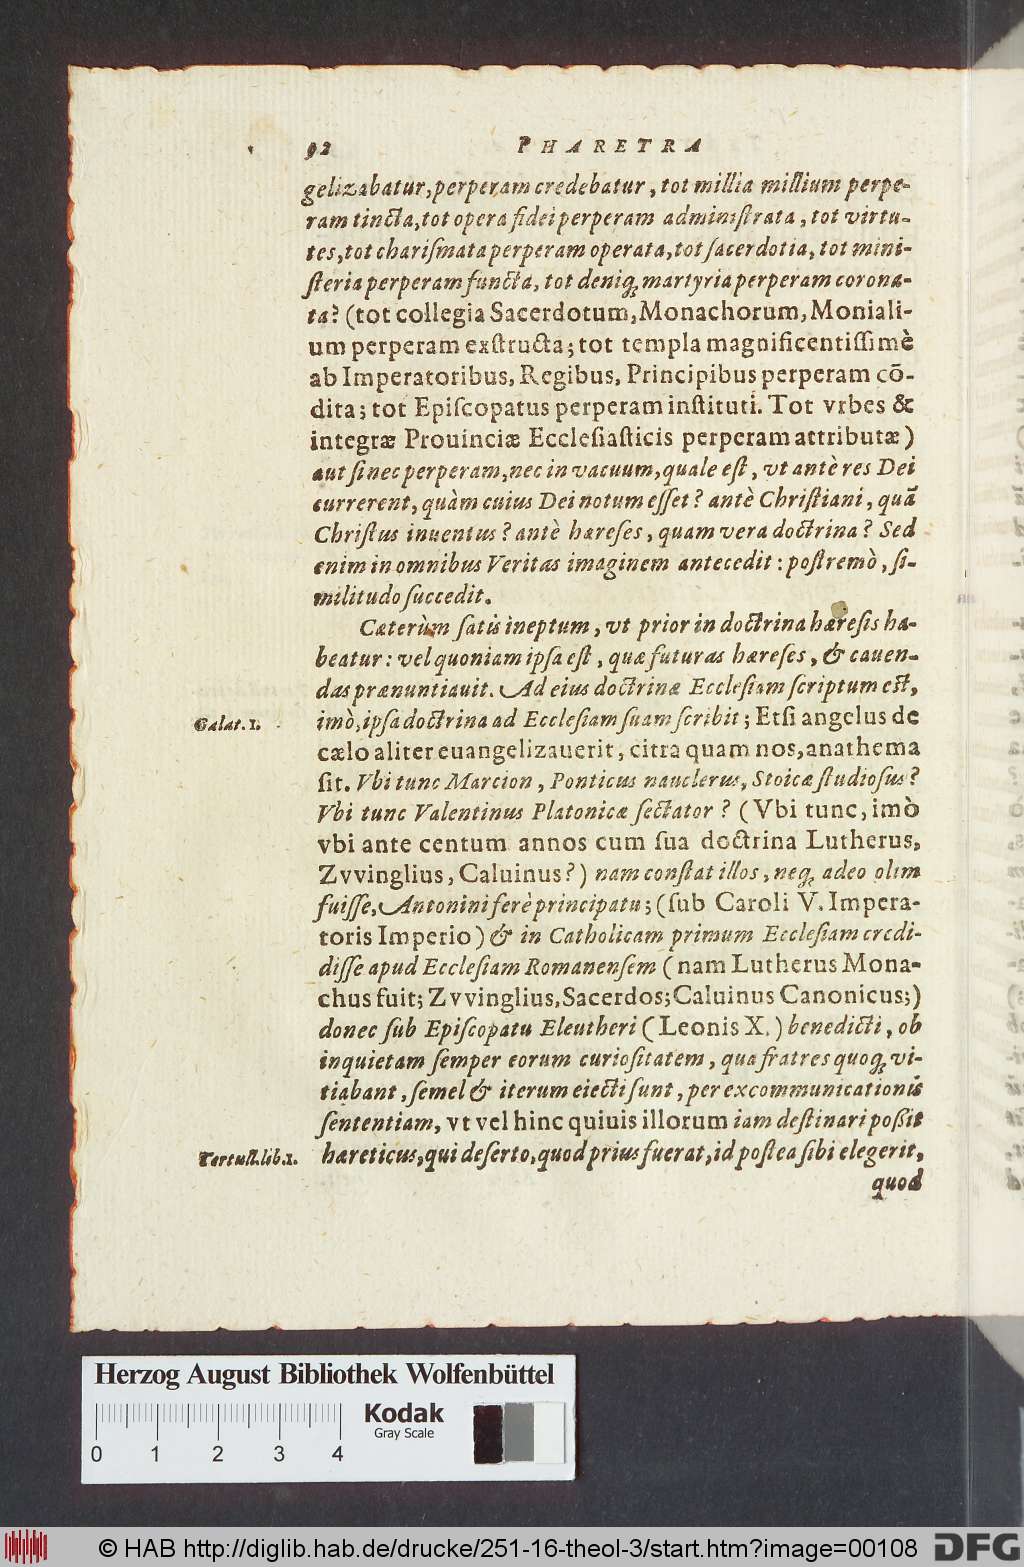 92 PHARETRA
gelizabatur, perperam credebatur, tot millia millium perpe-
ram tincta, tot opera fidei perperam administrata, tot virtu-
tes, tot chariſmata perperam operata, tot ſacerdotia, tot mini-
ſteria perperam functa, tot deniq; martyria perperam corona-
ta? (tot collegia Sacerdotum, Monachorum, Moniali-
um perperam exſtructa; tot templa magnificentiſſimè
ab Imperatoribus, Regibus, Principibus perperam cō-
dita; tot Epiſcopatus perperam inſtituti. Tot vrbes &
integræ Prouinciæ Eccleſiaſticis perperam attributæ)
aut ſi nec perperam, nec in vacuum, quale eſt, vt antè res Dei
currerent, quàm cuius Dei notum eſſet? antè Chriſtiani, quā
Chriſtus inuentus? antè hæreſes, quam vera doctrina? Sed
enim in omnibus Veritas imaginem antecedit: poſtremò, ſi-
militudo ſuccedit.
Cæterùm ſatis ineptum, vt prior in doctrina hæreſis ha-
beatur: vel quoniam ipſa eſt, quæ futuras hæreſes, & cauen-
das prænuntiauit. Ad eius doctrinæ Eccleſiam ſcriptum eſt,
Galat. 1.
imò, ipſa doctrina ad Eccleſiam ſuam ſcribit; Etſi angelus de
cælo aliter euangelizauerit, citra quam nos, anathema
ſit. Vbi tunc Marcion, Ponticus nauclerus, Stoicæ ſtudioſus?
Vbi tunc Valentinus Platonicæ ſectator? (Vbi tunc, imò
vbi ante centum annos cum ſua doctrina Lutherus,
Zvvinglius, Caluinus?) nam conſtat illos, neq; adeo olim
fuiſſe, Antonini ferè principatu; (ſub Caroli V. Impera-
toris Imperio) & in Catholicam primum Eccleſiam credi-
diſſe apud Eccleſiam Romanenſem (nam Lutherus Mona-
chus fuit; Zvvinglius, Sacerdos; Caluinus Canonicus;)
donec ſub Epiſcopatu Eleutheri (Leonis X.) benedicti, ob
inquietam ſemper eorum curioſitatem, qua fratres quoq; vi-
tiabant, ſemel & iterum eiecti ſunt, per excommunicationis
ſententiam, vt vel hinc quiuis illorum iam deſtinari poßit
Tertull. lib. 1.
hæreticus, qui deſerto, quod prius fuerat, id poſtea ſibi elegerit,
quod
Herzog August Bibliothek Wolfenbüttel
Kodak
Gray Scale
0 1 2 3 4
© HAB http://diglib.hab.de/drucke/251-16-theol-3/start.htm?image=00108
DFG